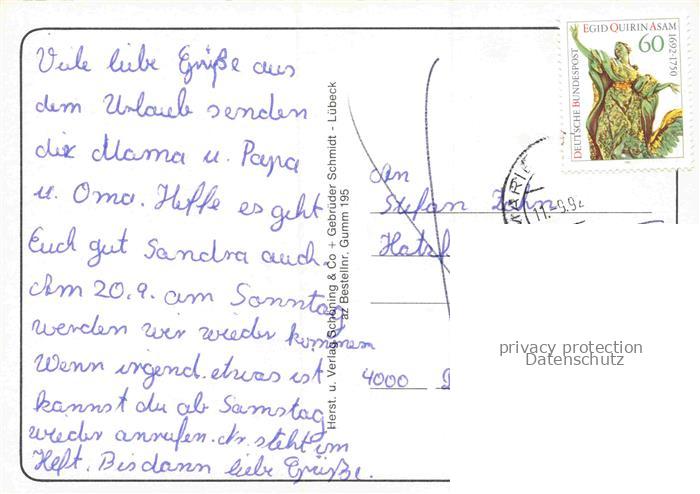 Viele liebe Grüße aus
dem Urlaub senden
dir Mama u. Papa
u. Oma. Hoffe es geht
Euch gut Sandra auch.
Am 20.9. am Sonntag
werden wir wieder kommen
Wenn irgend.etwas ist
kannst du ab Samstag
wieder anrufen. Nr. steht im
Heft. Bis dann liebe Grüße.
Herst. u. Verlag Schöning & Co + Gebrüder Schmidt - Lübeck
az Bestellnr. Gumm 195
EGID QUIRIN ASAM
1692-1750
60
DEUTSCHE BUNDESPOST
11.-9.92
An
Stefan
4000
privacy protection
Datenschutz